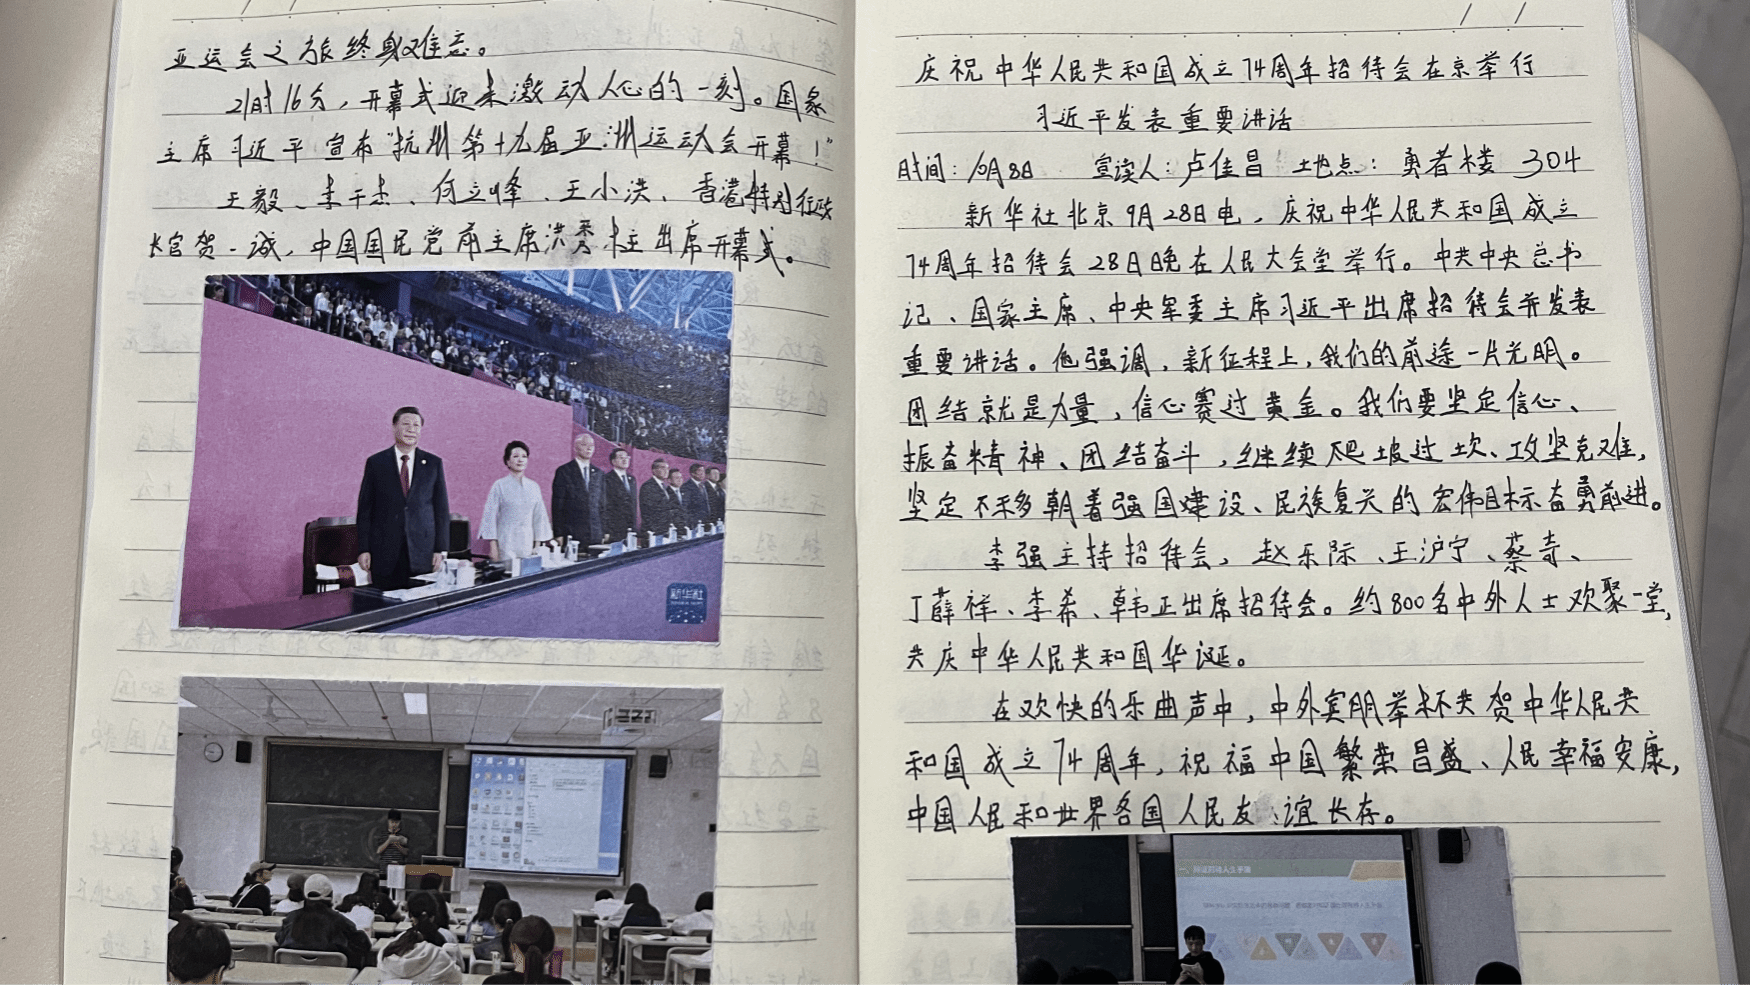 亚运会之旅终身难忘。
21时16分，开幕式迎来激动人心的一刻。国家
主席习近平宣布“抗州第十九届亚洲运动会开幕！”
王毅、李干杰、何立峰、王小洪、香港特别行政
长官贺一诚，中国国民党前主席洪秀柱出席开幕式。
新华社
庆祝中华人民共和国成立74周年招待会在京举行
习近平发表重要讲话
时间：10月8日 宣读人：卢佳昌 地点：勇者楼 304
新华社北京9月28日电，庆祝中华人民共和国成立
74周年招待会28日晚在人民大会堂举行。中共中央总书
记、国家主席、中央军委主席习近平出席招待会并发表
重要讲话。他强调，新征程上，我们的前途一片光明。
团结就是力量，信心赛过黄金。我们要坚定信心、
振奋精神、团结奋斗，继续爬坡过坎、攻坚克难，
坚定不移朝着强国建设、民族复兴的宏伟目标奋勇前进。
李强主持招待会，赵乐际、王沪宁、蔡奇、
丁薛祥、李希、韩正出席招待会。约800名中外人士欢聚一堂，
共庆中华人民共和国华诞。
在欢快的乐曲声中，中外宾朋举杯共贺中华人民共
和国成立74周年，祝福中国繁荣昌盛、人民幸福安康，
中国人民和世界各国人民友谊长存。